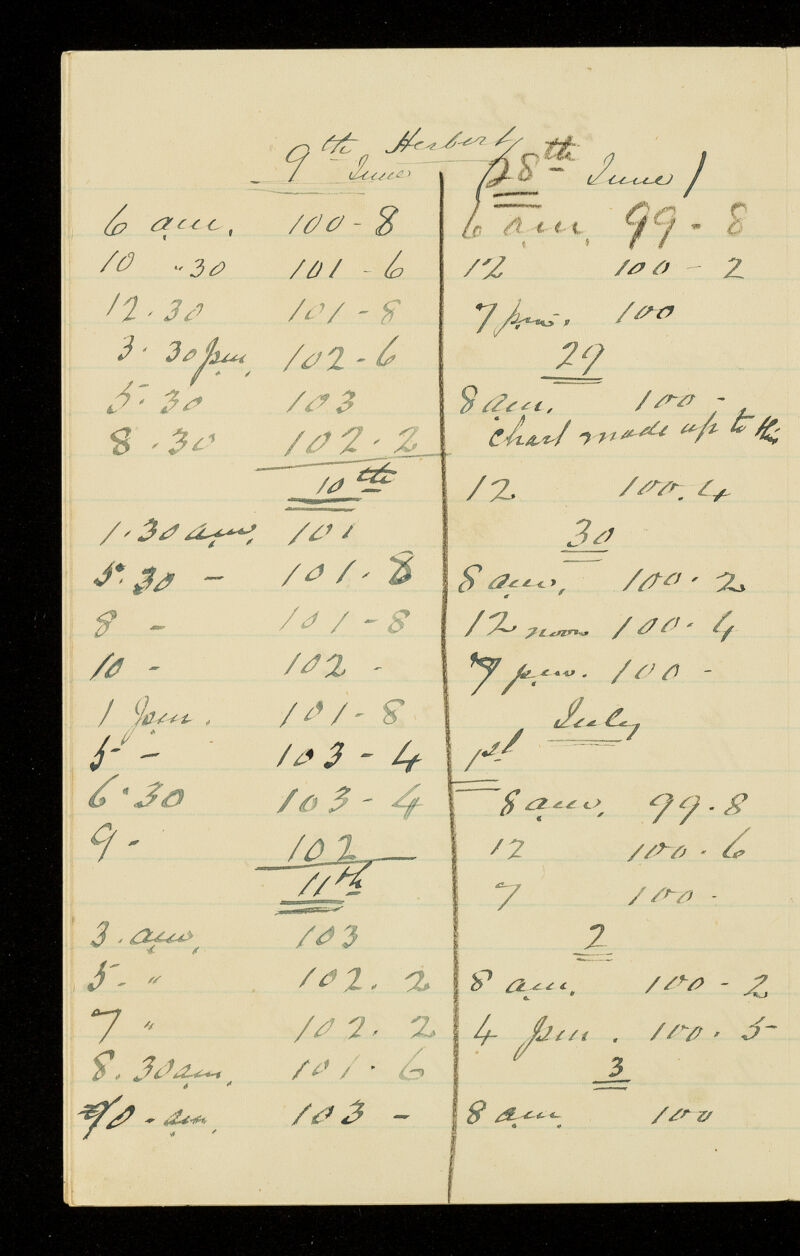 Herbert
9th June
6 a.m. 100-8
10 "30 101-6
12.30 101-8
3.30 pm. 102-6
5.30 103
8.30 102.2
10th
1.30 a.m. 101
5.30 - 101.8
8 - 101-8
10 - 102 -
1 pm. 101-8
5 - 103-4
6.30 103-4
9 - 102
11th
3. a.m. 103
5. " 102.2
7 " 102.2
8.30 a.m. 101.6
10 - a.m. 103 -
(28th June)
6 a.m. 99-8
12 100-2
7 p.m. 100
29
8 a.m. 100 -
Chart made up to this
12 100.4
30
8 a.m. 100.2
12 noon 100.4
7 p.m. 100 -
July
1st
8 a.m. 99.8
12 100.6
7 100 -
2
8 a.m. 100-2
4 pm. 100.5
3
8 a.m. 100